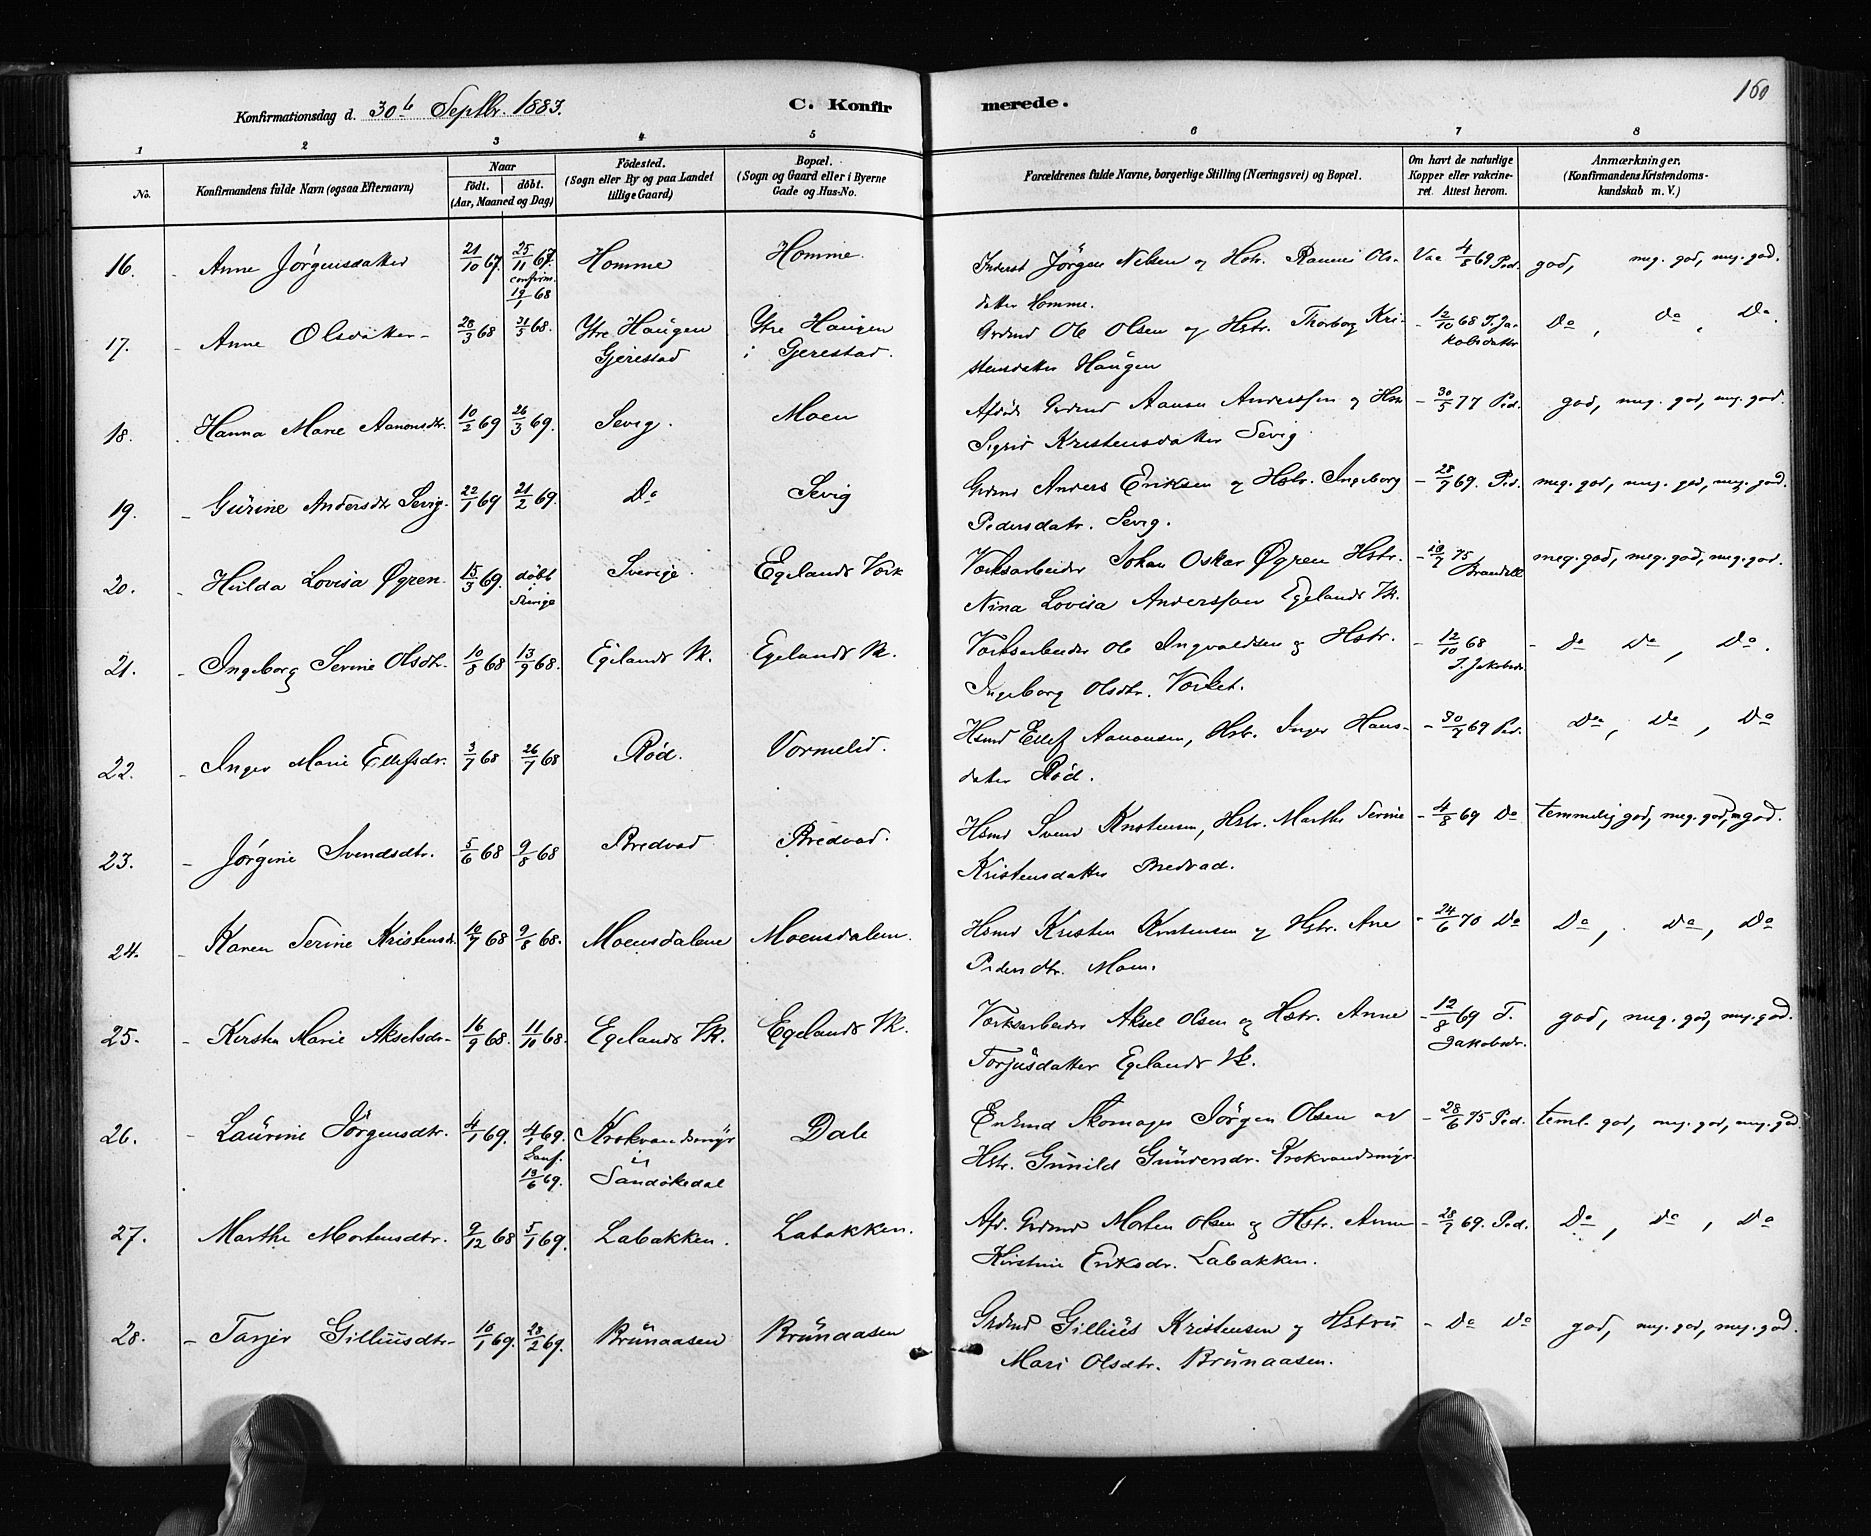 160
Konfirmationsdag d. 30te Septbr. 1883.
C. Konfirmerede.
1 2 3 4 5 6 7 8
No. Konfirmandens fulde Navn (ogsaa Efternavn) Naar født. døbt. (Aar, Maaned og Dag) Fødested. (Sogn eller By og paa Landet tillige Gaard) Bopæl. (Sogn og Gaard eller i Byerne Gade og Hus-No. Forældrenes fulde Navne, borgerlige Stilling (Næringsvei) og Bopæl. Om havt de naturlige Kopper eller vakcineret. Attest herom. Anmærkninger. (Konfirmandens Kristendomskundskab m. V.)
16. - Anne Jørgensdatter 21/10 67. 25/11 67. confirm. 19/1 68 Homme Homme. Inderst Jørgen Nilsen og Hstr. Rannei Olsdatter Homme. Vac 4/8 69 Ped. god, meg. god, meg. god.
17. - Anne Olsdatter - 28/3 68 31/5 68. Ytre Haugen Gjerestad Ytre Haugen i Gjerestad. Grdmd Ole Olsen og Hstr. Thorborg Kristensdatter Haugen - 12/10 68 T. Jakobsdatter Do, Do, Do.
18. Hanna Marie Aanonsdtr. 10/2 69 26/3 69. Sevig. Moen Afdøde Grdmd Aanon Anderssen og Hstr Sigrid Kristensdatter Sevig. - 30/5 77 Ped. god, meg. god, meg. god.
19. - Gurine Andersdtr Sevig. 22/1 69 21/2 69. Do Sevig Grdmd Anders Eriksen og Hstr. Ingeborg Pedersdatr. Sevig. - 28/7 69. Ped. meg. god, meg. god, meg. god.
20. - Hulda Lovisa Øgren 15/3 69. døbt i Sverige Sverige. Egelands Værk Værksarbeider Johan Oskar Øgren Hstr. Nina Lovisa Anderssen Egelands Vk. - 10/7 75 Brandell meg. god, meg. god, meg. god.
21. - Ingeborg Serine Olsdtr. 10/8 68 13/9 68. Egelands Vk. Egelands Vk. Værksarbeider Ole Ingvaldsen og Hstr. Ingeborg Olsdtr. Værket. - 12/10 68 T. Jakobsdr - Do Do, Do.
22. - Inger Marie Ellefsdr. 3/7 68 26/7 68 Rød. Vormelid. Hsmd Ellef Aanonsen, Hstr. Inger Hansdatter Rød. - 30/7 69 Ped. Do, Do, Do
23. - Jørgine Svendsdtr. 5/6 68 9/8 68 Bredvad Bredvad. Hsmd Svend Kristensen, Hstr. Marthe Serine Kristensdatter Bredvad. - 4/8 69 Do temmelig god, meg. god, m god.
24. - Karen Serine Kristensdr. 10/7 68 9/8 68. Moensdalene Moensdalene. Hsmd Kristen Kristensen og Hstr. Ane Pedersdtr. Moen. - 24/6 70 Do Do, Do, Do
25. - Kirsten Marie Akselsdr- 16/9 68. 11/10 68. Egelands Vk. Egelands Vk. Værksarbeider Aksel Olsen og Hstr. Anne Torjusdatter Egelands Vk. - 12/8 69 T. Jakobsdr. god, meg. god, meg. god.
26. - Laurine Jørgensdtr. 4/1 69. 4/1 69. Conf. 13/6 69. Krokvandsmyr i Sandøkedal Dale Enkmd Skomager Jørgen Olsen av Hstr. Gunild Gundersdr. Krokvandsmyr. - 28/6 75 Ped. teml. god, meg. god, meg. god.
27. - Marthe Mortensdtr. 9/12 68 5/1 69. Labakken. Labakken. Afd. Grdmd Morten Olsen og Hstr. Anne Kirstine Eriksdr. Labakken. - 28/7 69. Ped. Do, Do, Do
28. - Tarjer Gilliusdtr- 10/1 69. 28/2 69. Brunaasen Brunaasen Grdmd Gillius Kristensen og Hstru Mari Olsdtr. Brunaasen. - Do Do god, meg. god, meg. god.